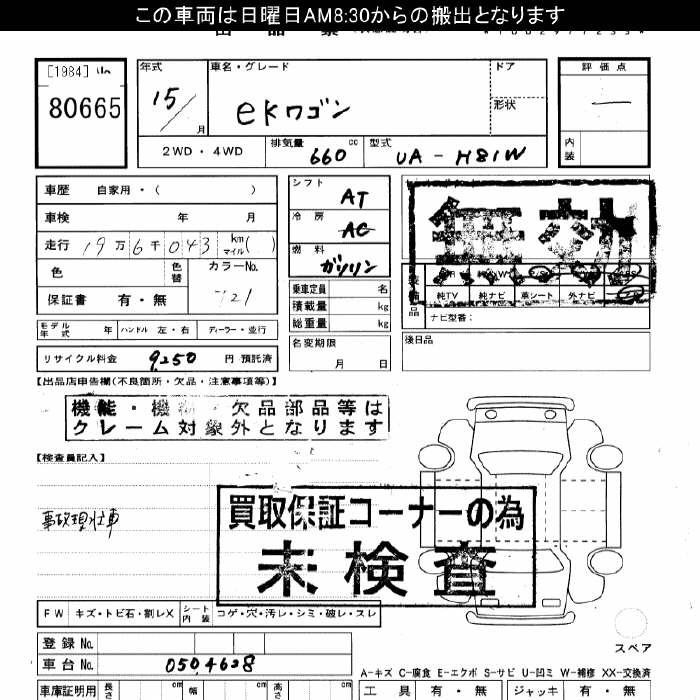 この車両は日曜日AM8:30からの搬出となります
[1984] 山
80665
年式
15/
月
車名・グレード
eKワゴン
ドア
形状
評価点
内装
2WD・4WD
排気量
660 cc
型式
UA-H81W
車歴 自家用・( )
車検 年 月
走行 19万6千043 km マイル( )
色
色替
カラーNo.
保証書 有・無
シフト AT
冷房 AC
燃料 ガソリン
乗車定員 名
積載量 kg
総重量 kg
無効
純TV 純ナビ 革シート 外ナビ
ナビ型番:
後日品
モデル年式 年 ハンドル 左・右 ディーラー・並行
名変期限
月 日
リサイクル料金 9,250 円 預託済
【出品店申告欄(不良個所・欠品・注意事項等)】
機能・機 ・欠品部品等は
クレーム対象外となります
【検査員記入】
事故現状車
買取保証コーナーの為
未検査
FW キズ・トビ石・割レX シート内装 コゲ・穴・汚レ・シミ・破レ・スレ
登録No.
車台No. 0504628
スペア
A-キズ C-腐食 E-エクボ S-サビ U-凹ミ W-補修 XX-交換済
車庫証明用 長さ cm 幅 cm 高さ cm
工具 有・無 ジャッキ 有・無